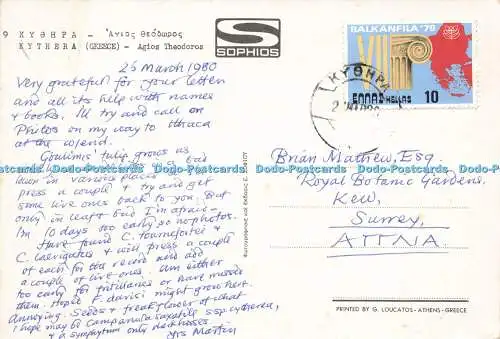 9 ΚΥΘΗΡΑ - Ἅγιος Θεόδωρος
KYTHERA (GREECE) - Agios Theodoros
SOPHIOS
BALKANFILA '79
VII
ΕΛΛΑΣ-HELLAS 10
ΚΥΘΗΡΑ
25 March 1980
Very grateful for your letter
and all its help with names
& books. I'll try and call on
Phitos on my way to Ithaca
at the w/end.
Goulimis tulip grows as
in various places
press a couple & try and get
some live ones back to you. But
only in leaf & bud I'm afraid -
I'm 10 days too early so no photos.
Have found C. tournefortii &
C. laevigatus & will press a couple
of each for the record and add
a couple of live ones. Am either
too early for fritillaries or have missed
them. Hope F. davisii might grow here.
Annoying. Seeds & freak flower of what
I hope may be Campanula saxatilis ssp cytherea,
& a symphytum only
Yrs Martin
Brian Mathew, Esq.
Royal Botanic Gardens,
Kew,
Surrey,
ΑΓΓΛΙΑ
PRINTED BY G. LOUCATOS - ATHENS - GREECE
Postcards